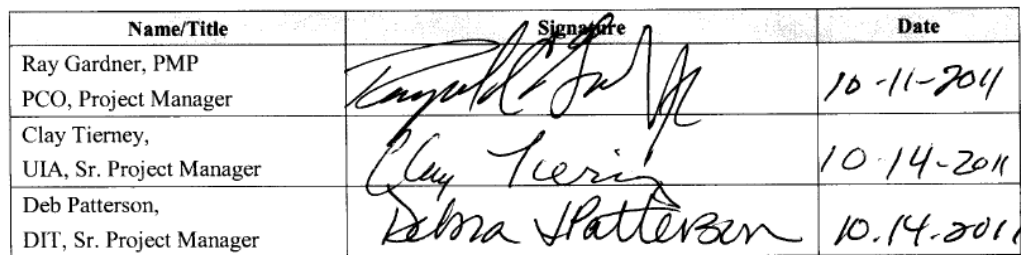 Name/Title Signature Date
Ray Gardner, PMP
PCO, Project Manager 10-11-2011
Clay Tierney,
UIA, Sr. Project Manager Clay Tierney 10-14-2011
Deb Patterson,
DIT, Sr. Project Manager Debra J Patterson 10.14.2011